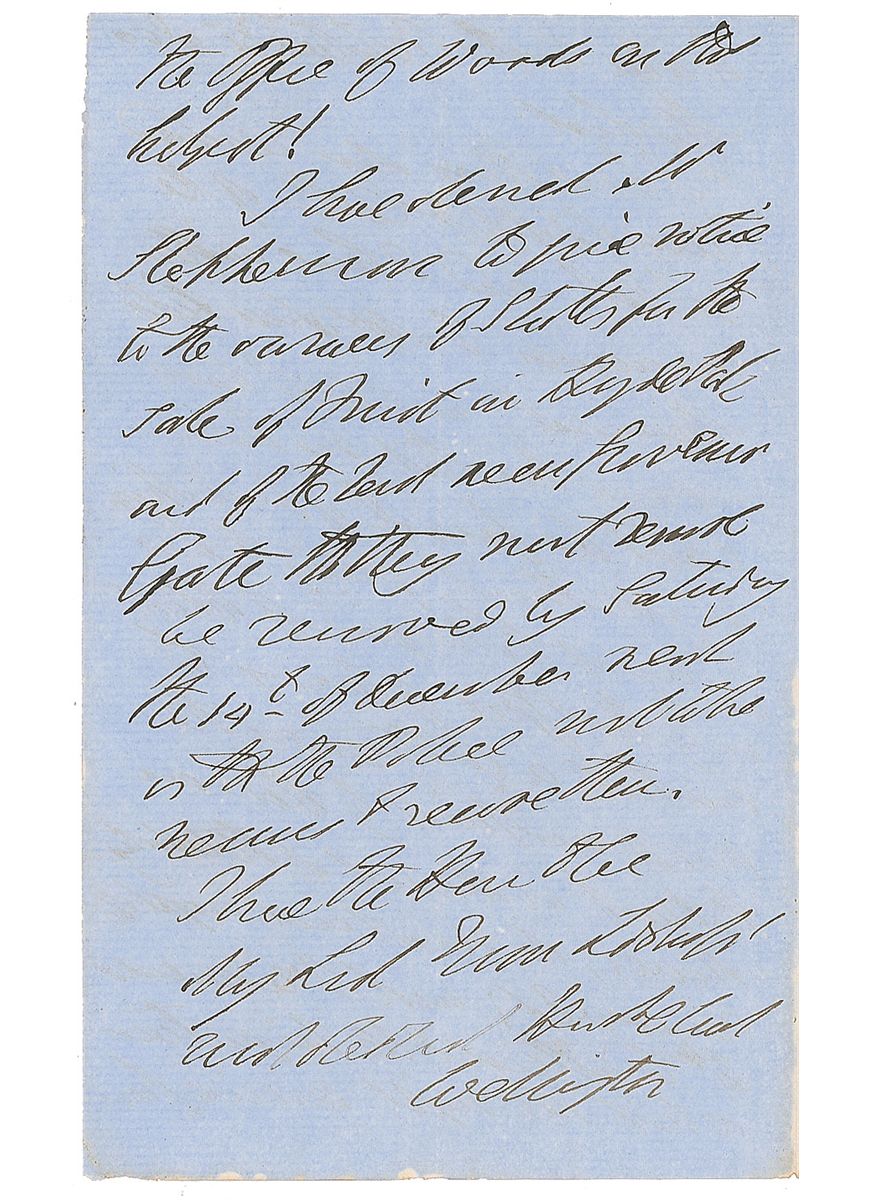 the Office of Woods on this
subject!
I have desired Mr
Stephenson to give notice
to the owners of Stalls for the
sale of Fruit in Hyde Park
and of the one near Grosvenor
Gate that they must
be removed by Saturday
the 14th of December next
or that the Police will take
means to remove them.
I have the Honor to be
My Lord Your Lordship's
most obedient Humble Servant
Wellington